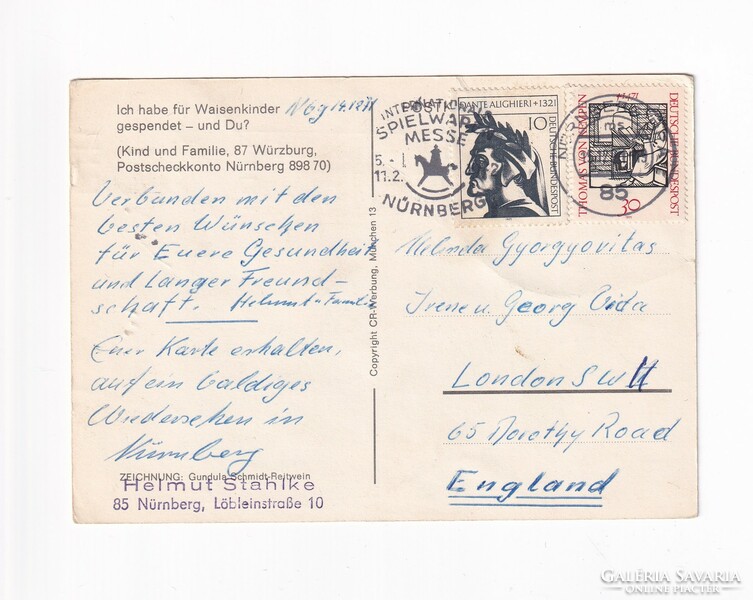 Ich habe für Waisenkinder
gespendet – und Du?
(Kind und Familie, 87 Würzburg,
Postscheckkonto Nürnberg 898 70)
Nbg 14.12.71
Verbunden mit den
besten Wünschen
für Euere Gesundheit
und Langer Freund-
schaft. Helmut u Familie
Euer Karte erhalten,
auf ein baldiges
Wiedersehen in
Nürnberg
ZEICHNUNG: Gundula Schmidt-Reitwein
Helmut Stahlke
85 Nürnberg, Löbleinstraße 10
Copyright CR-Werbung, München 13
INTERNATIONALE
SPIELWAREN
MESSE
5.-
11.2.
NÜRNBERG
DANTE ALIGHIERI +1321
10
DEUTSCHE BUNDESPOST
THOMAS VON KEMPEN +1471
DEUTSCHE BUNDESPOST
30
85
Melinda Gyorgyovitas
Irene u. Georg Vida
London SW
65 Dorothy Road
England
GALÉRIA SAVARIA
ONLINE PIACTÉR